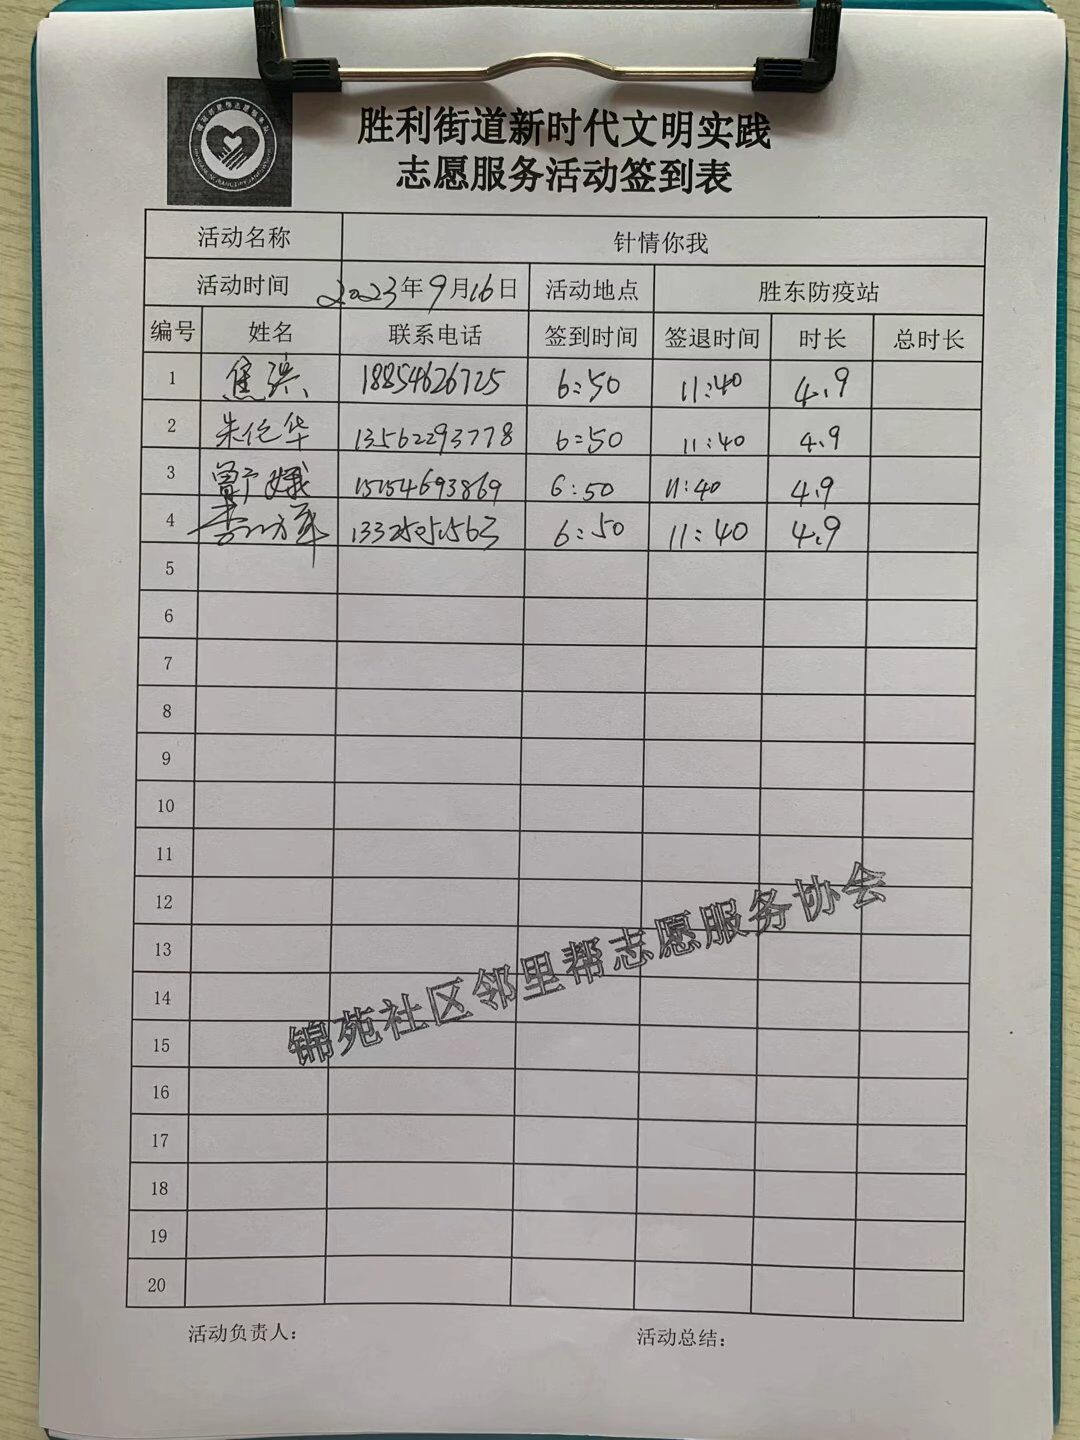 胜利街道新时代文明实践
志愿服务活动签到表
活动名称 针情你我
活动时间 2023年9月16日 活动地点 胜东防疫站
编号 姓名 联系电话 签到时间 签退时间 时长 总时长
1 焦洪 18854626725 6:50 11:40 4.9
2 朱伦华 13562293778 6:50 11:40 4.9
3 曾广娥 15154693869 6:50 11:40 4.9
4 6:50 11:40 4.9
5
6
7
8
9
10
11
12
13
14
15
16
17
18
19
20
锦苑社区邻里帮志愿服务协会
活动负责人： 活动总结：